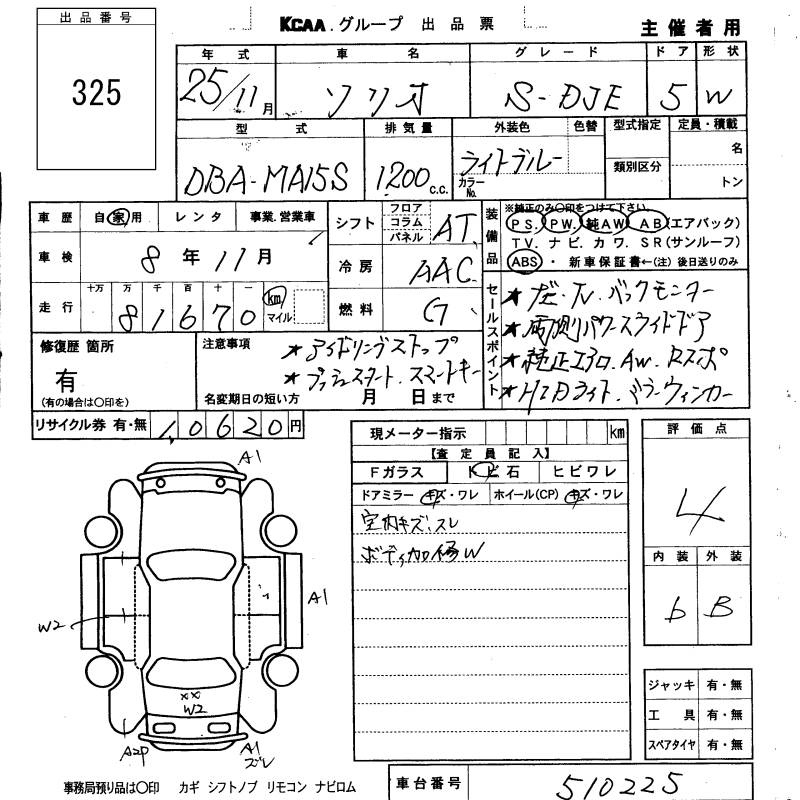 出品番号
325
KCAA.グループ 出品票
主催者用
年式 車名 グレード ドア 形状
25/11月 ソリオ S-DJE 5 W
型式 排気量 外装色 色替 型式指定 定員・積載
DBA-MA15S 1200c.c. ライトブルー カラーNo. 類別区分 名 トン
車歴 自家用 レンタ 事業.営業車
車検 8年11月
走行 十万 万 千 百 十 一
81670 km マイル
シフト フロア コラム パネル AT
冷房 AAC
燃料 G
装備品
※純正のみ〇印をつけて下さい。
PS. PW. 純AW. AB(エアバック)
TV. ナビ. カワ. SR(サンルーフ)
ABS・新車保証書←(注)後日送りのみ
セールスポイント
★ナビ.TV.バックモニター
★両側パワースライドドア
★純正エアロ.AW.Rスポ
★HIDライト.ドラーウィンカー
修復歴 箇所
有
(有の場合は〇印を)
注意事項
★アイドリングストップ
★プッシュスタート.スマートキー
名変期日の短い方 月 日まで
リサイクル券 有・無 10620円
現メーター指示 km
【査定員記入】
Fガラス トビ石 ヒビワレ
ドアミラー キズ・ワレ ホイール(CP) キズ・ワレ
室内キズ、スレ
ボディ加修W
評価点
4
内装 外装
b B
A1
A1
W2
××
W2
A2P
A1
ズレ
ジャッキ 有・無
工具 有・無
スペアタイヤ 有・無
事務局預り品は〇印 カギ シフトノブ リモコン ナビロム
車台番号 510225